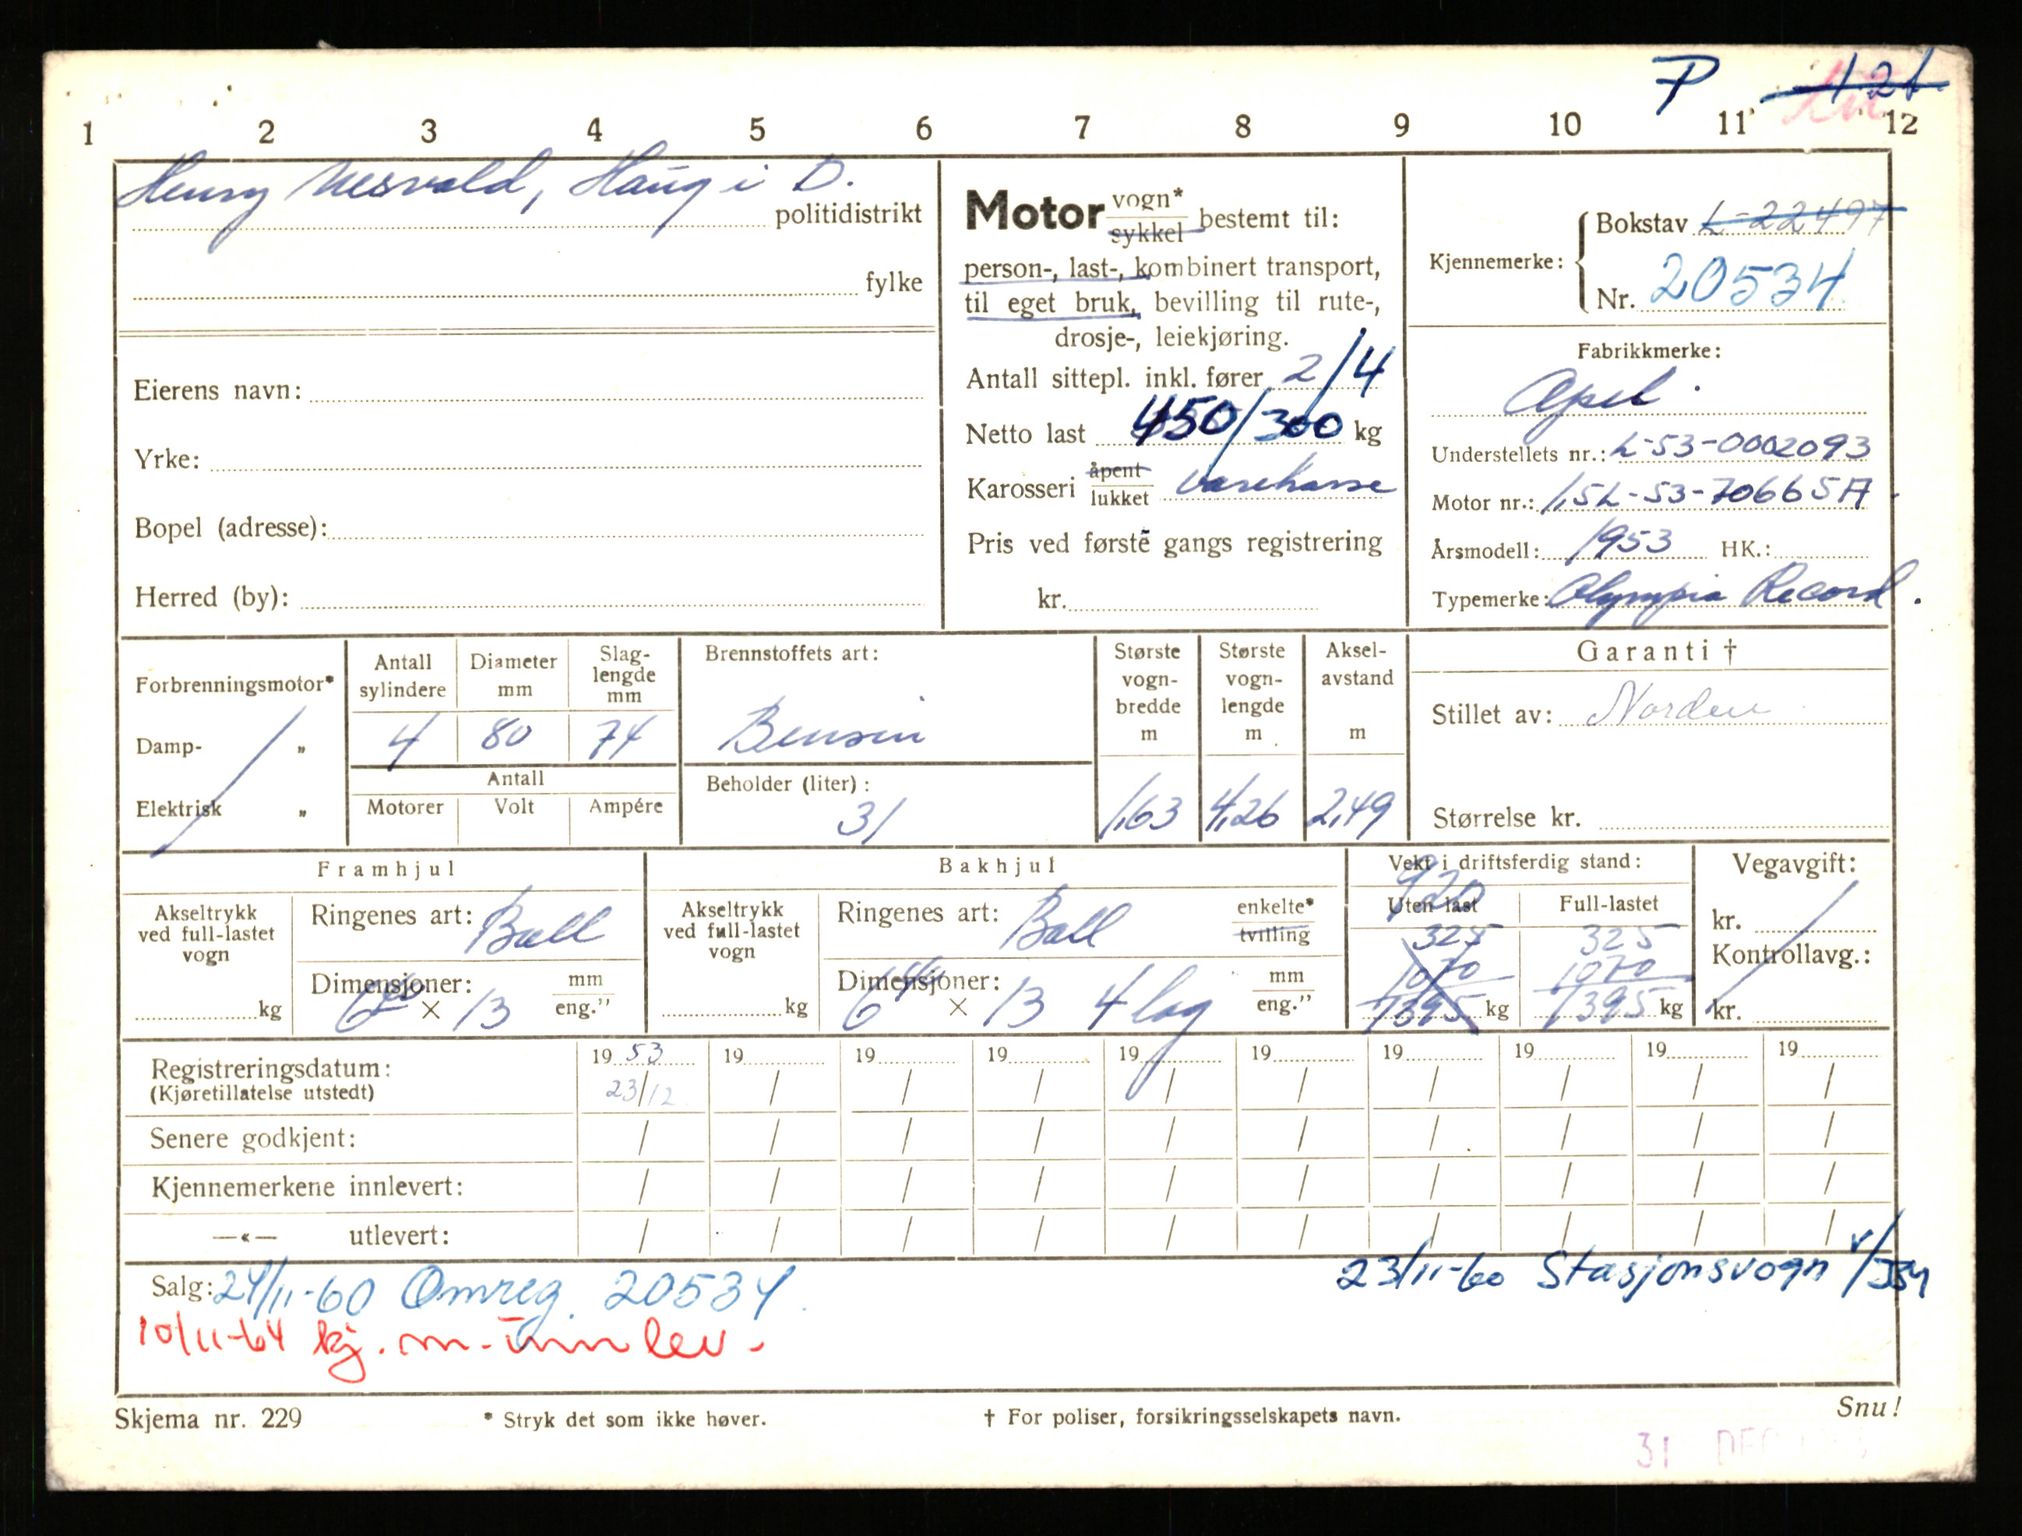 P 421
1 2 3 4 5 6 7 8 9 10 11 12
Henry Nesvold, Haug i D.
politidistrikt
fylke
Eierens navn:
Yrke:
Bopel (adresse):
Herred (by):
Motor vogn* sykkel bestemt til:
person-, last-, kombinert transport,
til eget bruk, bevilling til rute-,
drosje-, leiekjøring.
Antall sittepl. inkl. fører 2/4
Netto last 450/300 kg
Karosseri åpent lukket varekasse
Pris ved første gangs registrering
kr.
Kjennemerke: Bokstav L-22497
Nr. 20534
Fabrikkmerke:
Opel.
Understellets nr.: L-53-0002093
Motor nr.: 1,5L-53-70665A
Årsmodell: 1953 HK.:
Typemerke: Olympia Record.
Forbrenningsmotor*
Damp- „
Elektrisk „
Antall sylindere
Diameter mm
Slag-lengde mm
4 80 74
Antall
Motorer Volt Ampére
Brennstoffets art:
Bensin
Beholder (liter):
31
Største vogn-bredde m
1,63
Største vogn-lengde m
4,26
Aksel-avstand m
2,49
Garanti †
Stillet av: Norden
Størrelse kr.
Framhjul
Akseltrykk
ved full-lastet
vogn
kg
Ringenes art: Ball
Dimensjoner: mm
× 13 eng."
Bakhjul
Akseltrykk
ved full-lastet
vogn
kg
Ringenes art: Ball enkelte* tvilling
Dimensjoner: mm
6⁴⁰ × 13 4 lag eng."
Vekt i driftsferdig stand:
920
Uten last Full-lastet
325 325
1070 1070
1395 kg 1395 kg
Vegavgift:
kr.
Kontrollavg.:
kr.
Registreringsdatum: 19 53 19 19 19 19 19 19 19 19 19
(Kjøretillatelse utstedt) 23/12 / / / / / / / / /
Senere godkjent: / / / / / / / / / /
Kjennemerkene innlevert: / / / / / / / / / /
—«— utlevert: / / / / / / / / / /
Salg: 24/11-60 Omreg. 20534.
23/11-60 Stasjonsvogn
10/11-64 kj.m. innlev.
Skjema nr. 229
* Stryk det som ikke høver.
† For poliser, forsikringsselskapets navn.
Snu!
31 DE